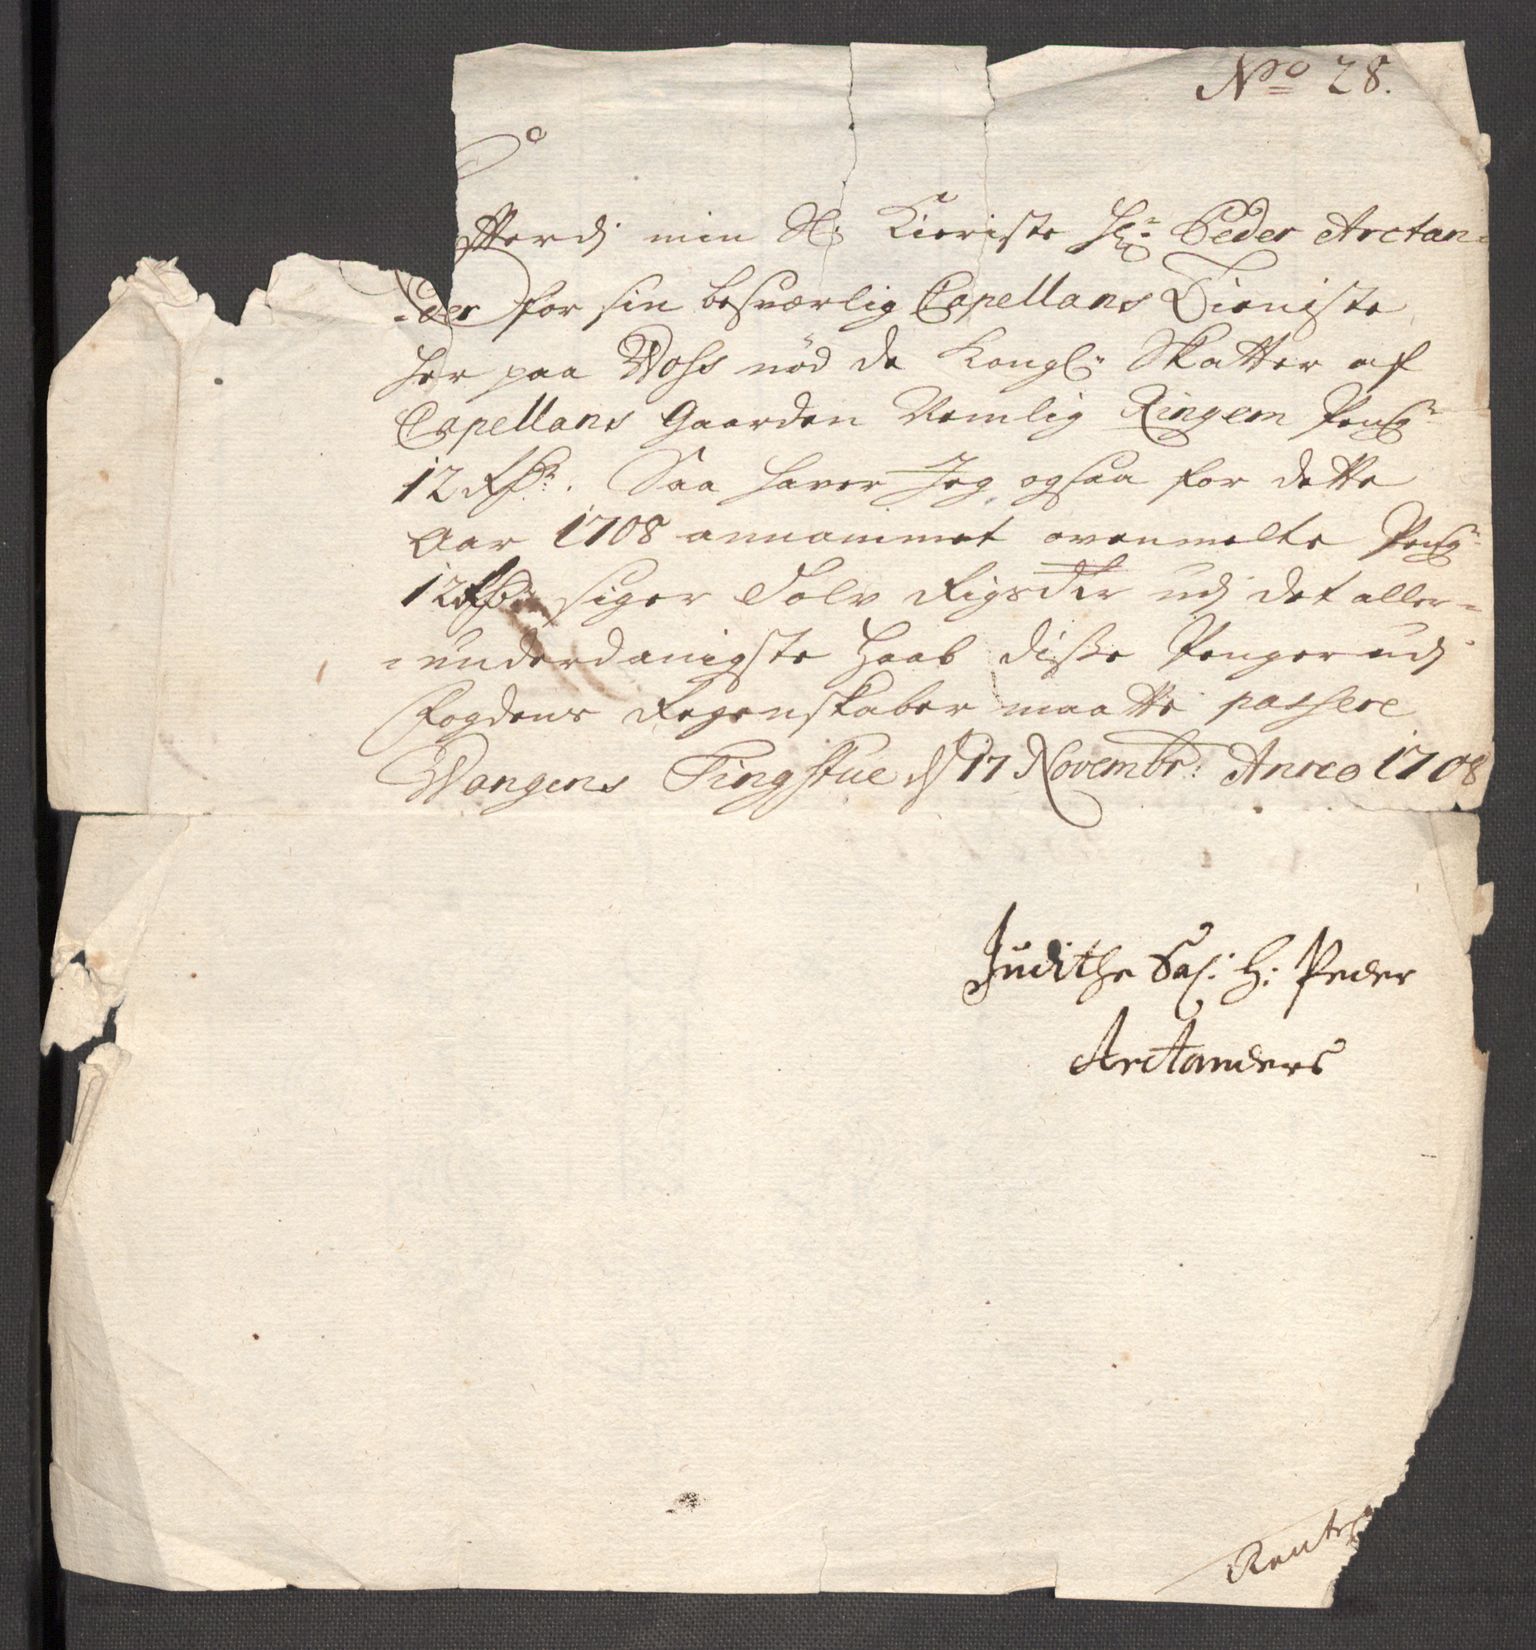 No 28.
fterdj min Sl: Kieriste Hr: Peder Arctan-
-der for sin besværlig Capellans Tieniste
her paa Woss nød de Kongl: Skatter af
Capellans Gaarden Nemlig Ringem Peng
12 Rdr. Saa haver Jeg ogsaa for dette
Aar 1708 annammet ovenmelte Peng
12 Rdr siger Tolv Rigsdlr udj det aller-
-underdanigste Haab disse Penger udj
Fogdens Regenskaber maatte passere
Wangens Tingstue d 17 Novembr: Anno 1708
Judithe Sal: H: Peder
Arctanders
Rent